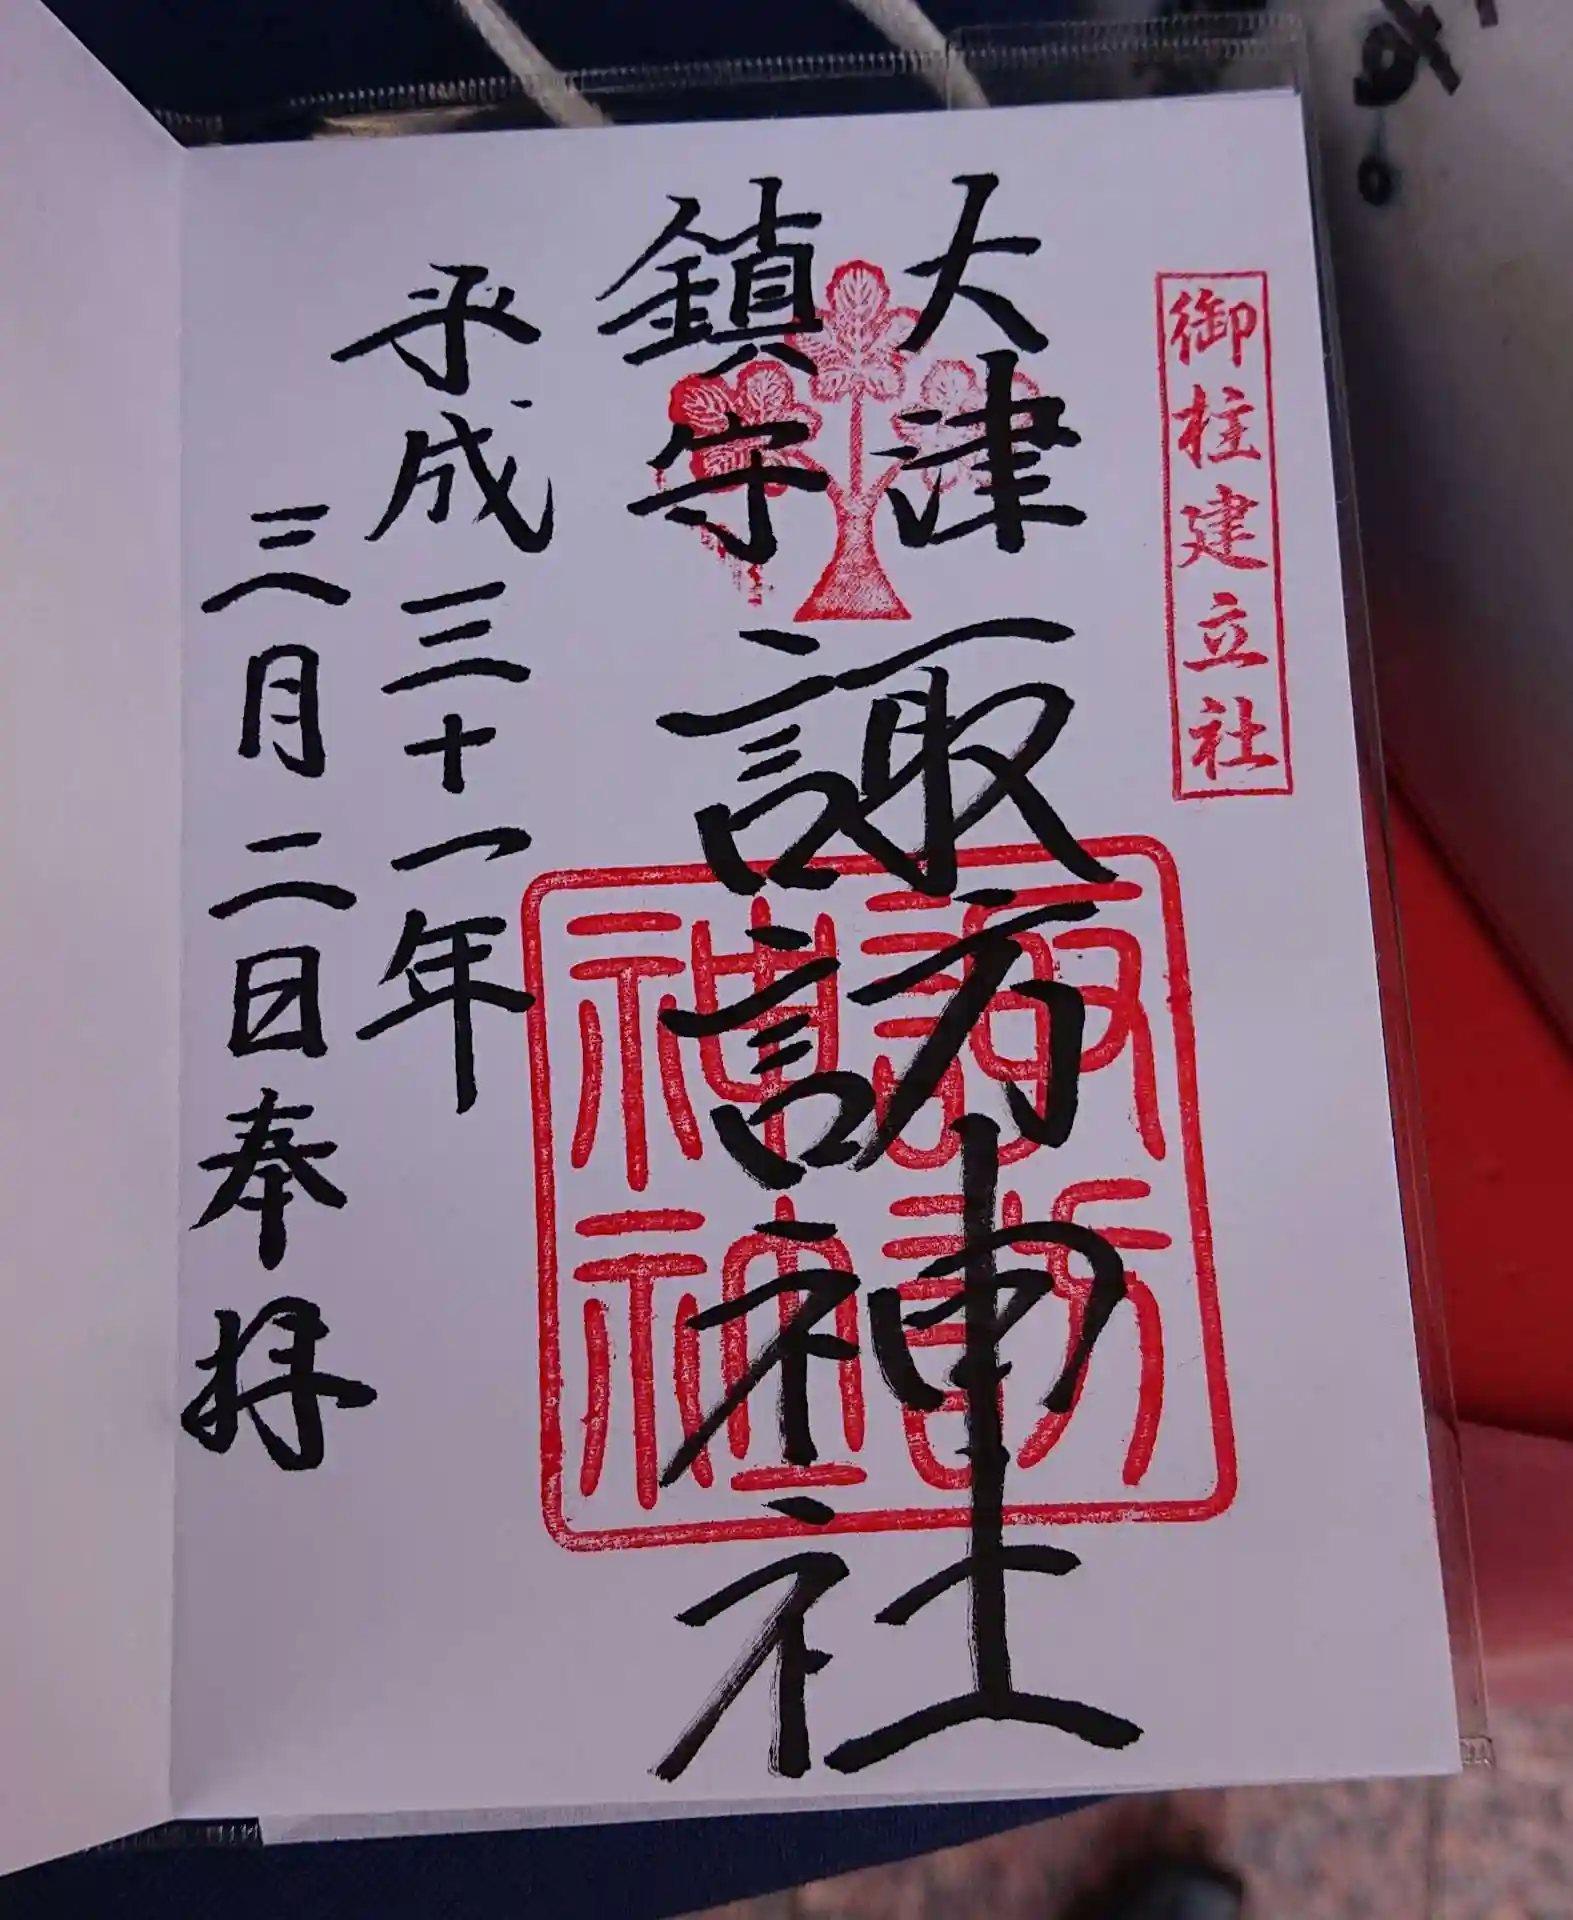 御柱建立社
大津
鎮守
諏訪神社
諏訪
神社
平成三十一年
三月二日奉拝